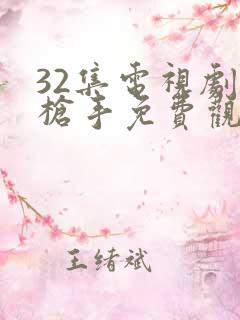 32集電視劇
槍手免費觀
王绪斌